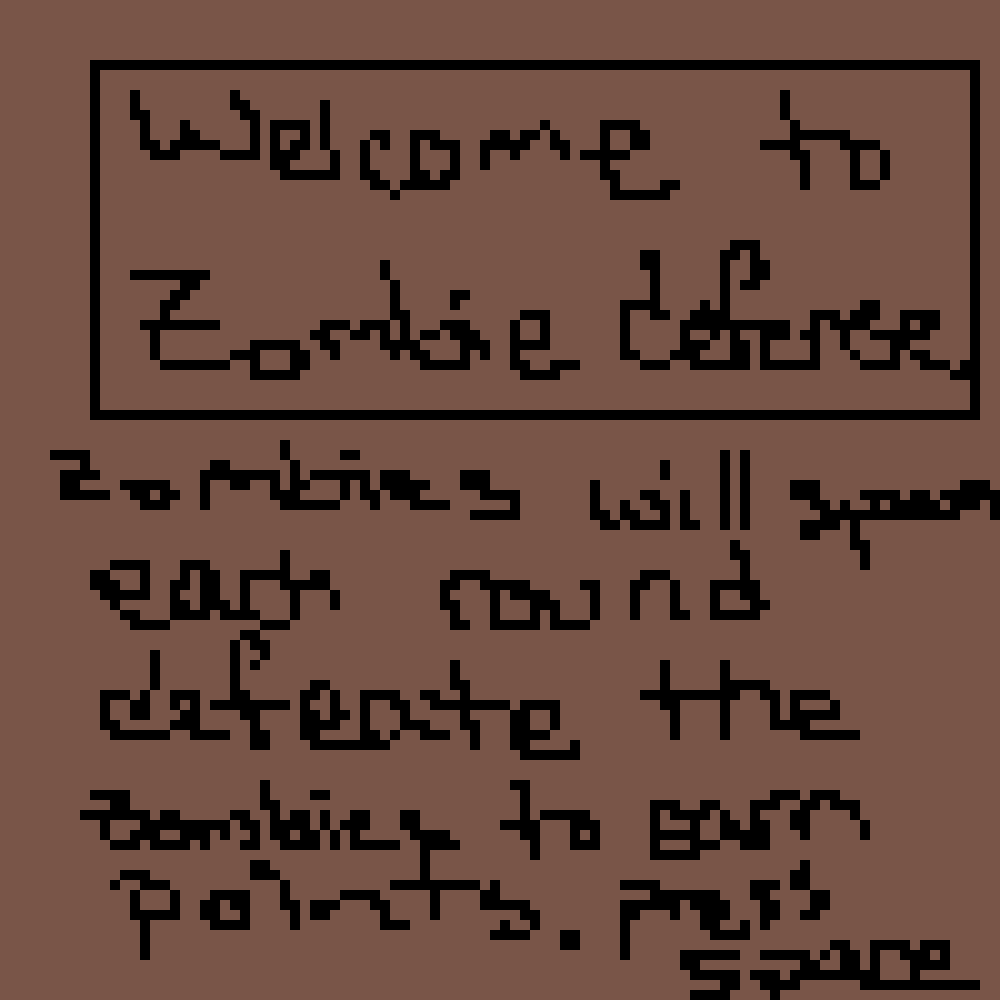 Welcome to
Zombie defense
Zombies will spawn
each round
defeate the
zombies to earn
points. press
space